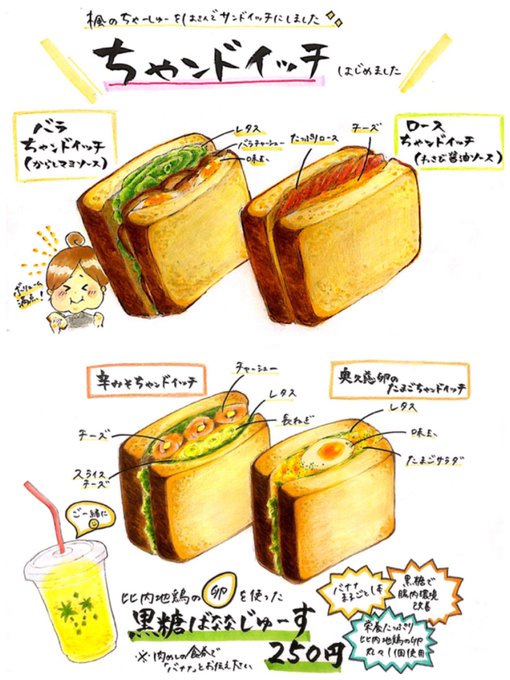 楓のちゃーしゅーをはさんでサンドイッチにしました
ちゃンドイッチ はじめました
バラ
ちゃンドイッチ
(からしマヨソース)
レタス
バラチャーシュー
味玉
ロース
ちゃンドイッチ
(わさび醤油ソース)
チーズ
たっぷりロース
ボリューム
満点!
辛みそちゃンドイッチ
チャーシュー
レタス
長ねぎ
チーズ
スライス
チーズ
奥久慈卵の
たまごちゃンドイッチ
レタス
味玉
たまごサラダ
ご一緒に
比内地鶏の卵を使った
黒糖ばななじゅーす
250円
※肉めしの食券で
「バナナ」とお伝えください
バナナ
まるごと1本
黒糖で
腸内環境
改善
栄養たっぷり
比内地鶏の卵
丸々1個使用